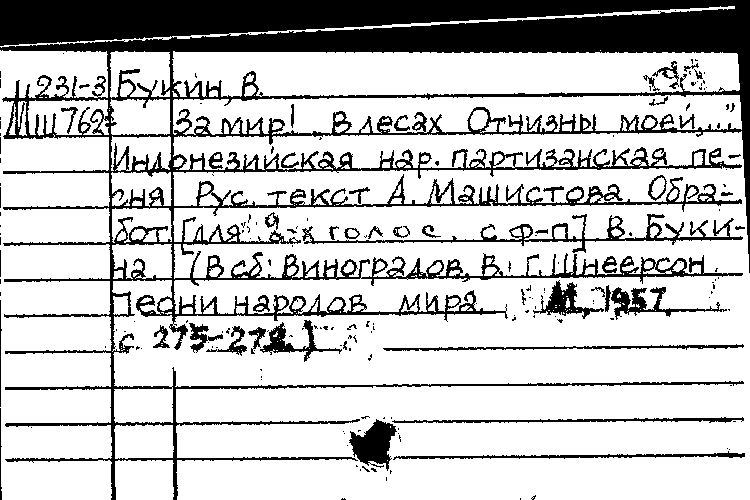 Ц231-3 Букин, В.
Мш762 За мир! „В лесах Отчизны моей,..."
Индонезийская нар. партизанская пе-
сня Рус. текст А. Машистова. Обра-
бот. [для 2-х голос. с ф-п.] В. Буки-
на. (В сб: Виноградов, В. и Г. Шнеерсон.
Песни народов мира. М., 1957.
с. 275-279.)